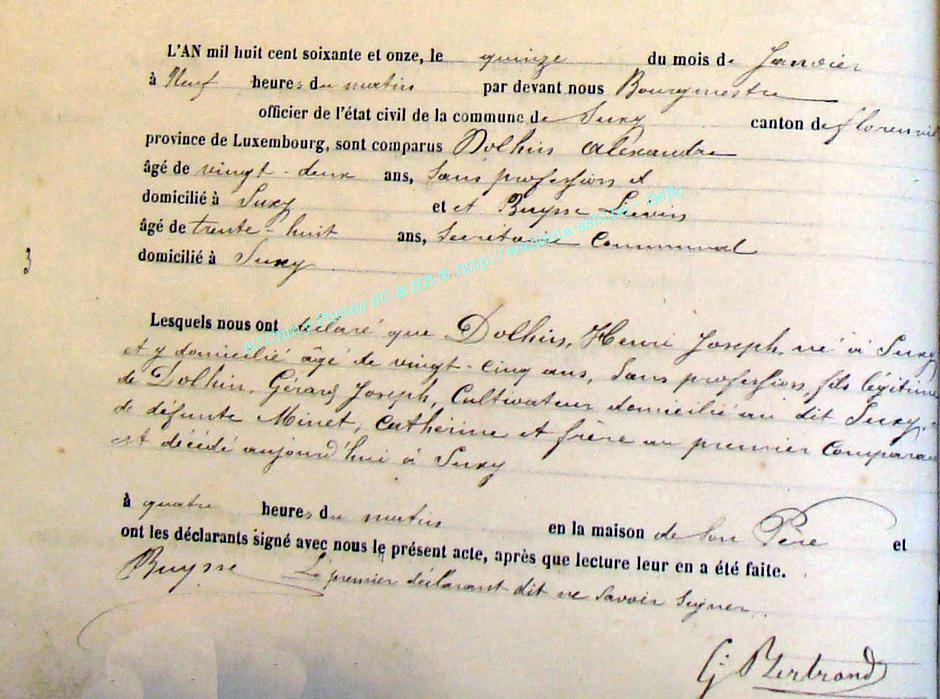 L'AN mil huit cent soixante et onze, le quinze du mois de Janvier
à Neuf heures du matin par devant nous Bourgmestre
officier de l'état civil de la commune de Suxy canton de florenvil
province de Luxembourg, sont comparus Dolhin Alexandre
âgé de vingt-deux ans, Sans profession et
domicilié à Suxy et et Buysse Livin
âgé de trente-huit ans, Secrétaire Communal
3
domicilié à Suxy
Lesquels nous ont déclaré que Dolhin, Henri Joseph, né à Suxy
et y domicilié âgé de vingt-cinq ans, Sans profession, fils légitime
de Dolhin, Gérard Joseph, Cultivateur domicilié au dit Suxy,
de défunte Minet, Catherine et frère au premier Comparant
est décédé aujourd'hui à Suxy
à quatre heures du matin en la maison de son Père et
ont les déclarants signé avec nous le présent acte, après que lecture leur en a été faite.
Buysse Le premier déclarant dit ne savoir signer
G. Bertrand